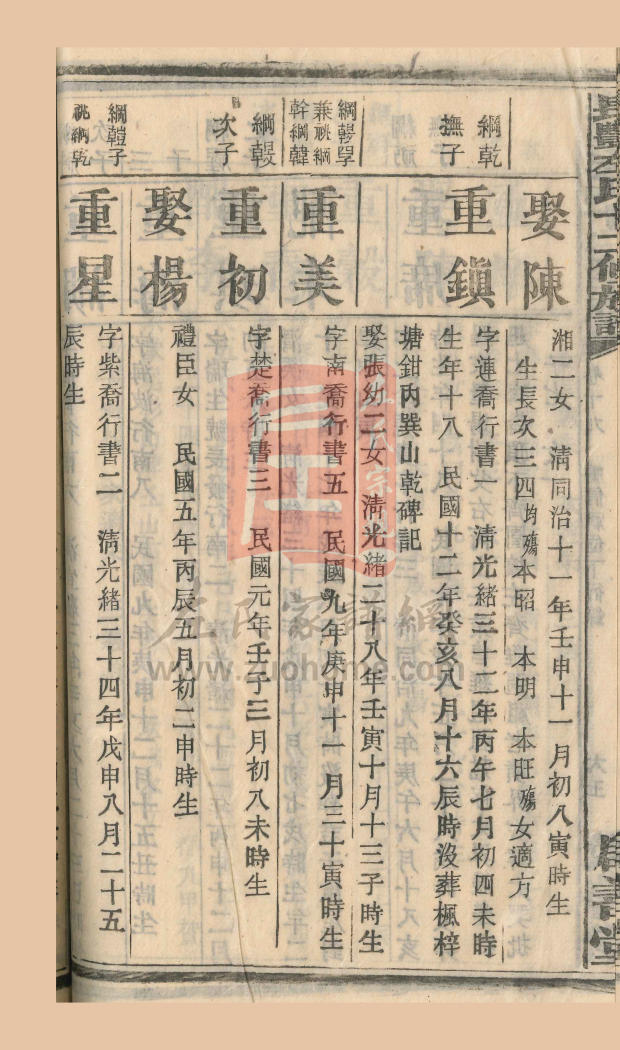 氏十二修族譜
書堂
娶陳
湘二女 清同治十一年壬申十一月初八寅時生
生長次三四均殤本昭 本明 本旺殤女適方
綱乾
撫子
重鎮
字蓮喬行書一 清光緒三十二年丙午七月初四未時
生年十八 民國十二年癸亥八月十六辰時沒葬楓梓
塘鉗丙巽山乾碑記
娶張幼二女 清光緒二十八年壬寅十月十三子時生
兼祧綱
幹綱韓
重美
字南喬行書五 民國九年庚申十一月三十寅時生
次子
重初
字楚喬行書三 民國元年壬子三月初八未時生
娶楊
禮臣女 民國五年丙辰五月初二申時生
祧綱乾
重星
字紫喬行書二 清光緒三十四年戊申八月二十五
辰時生
左氏家譜網
www.zuohome.com